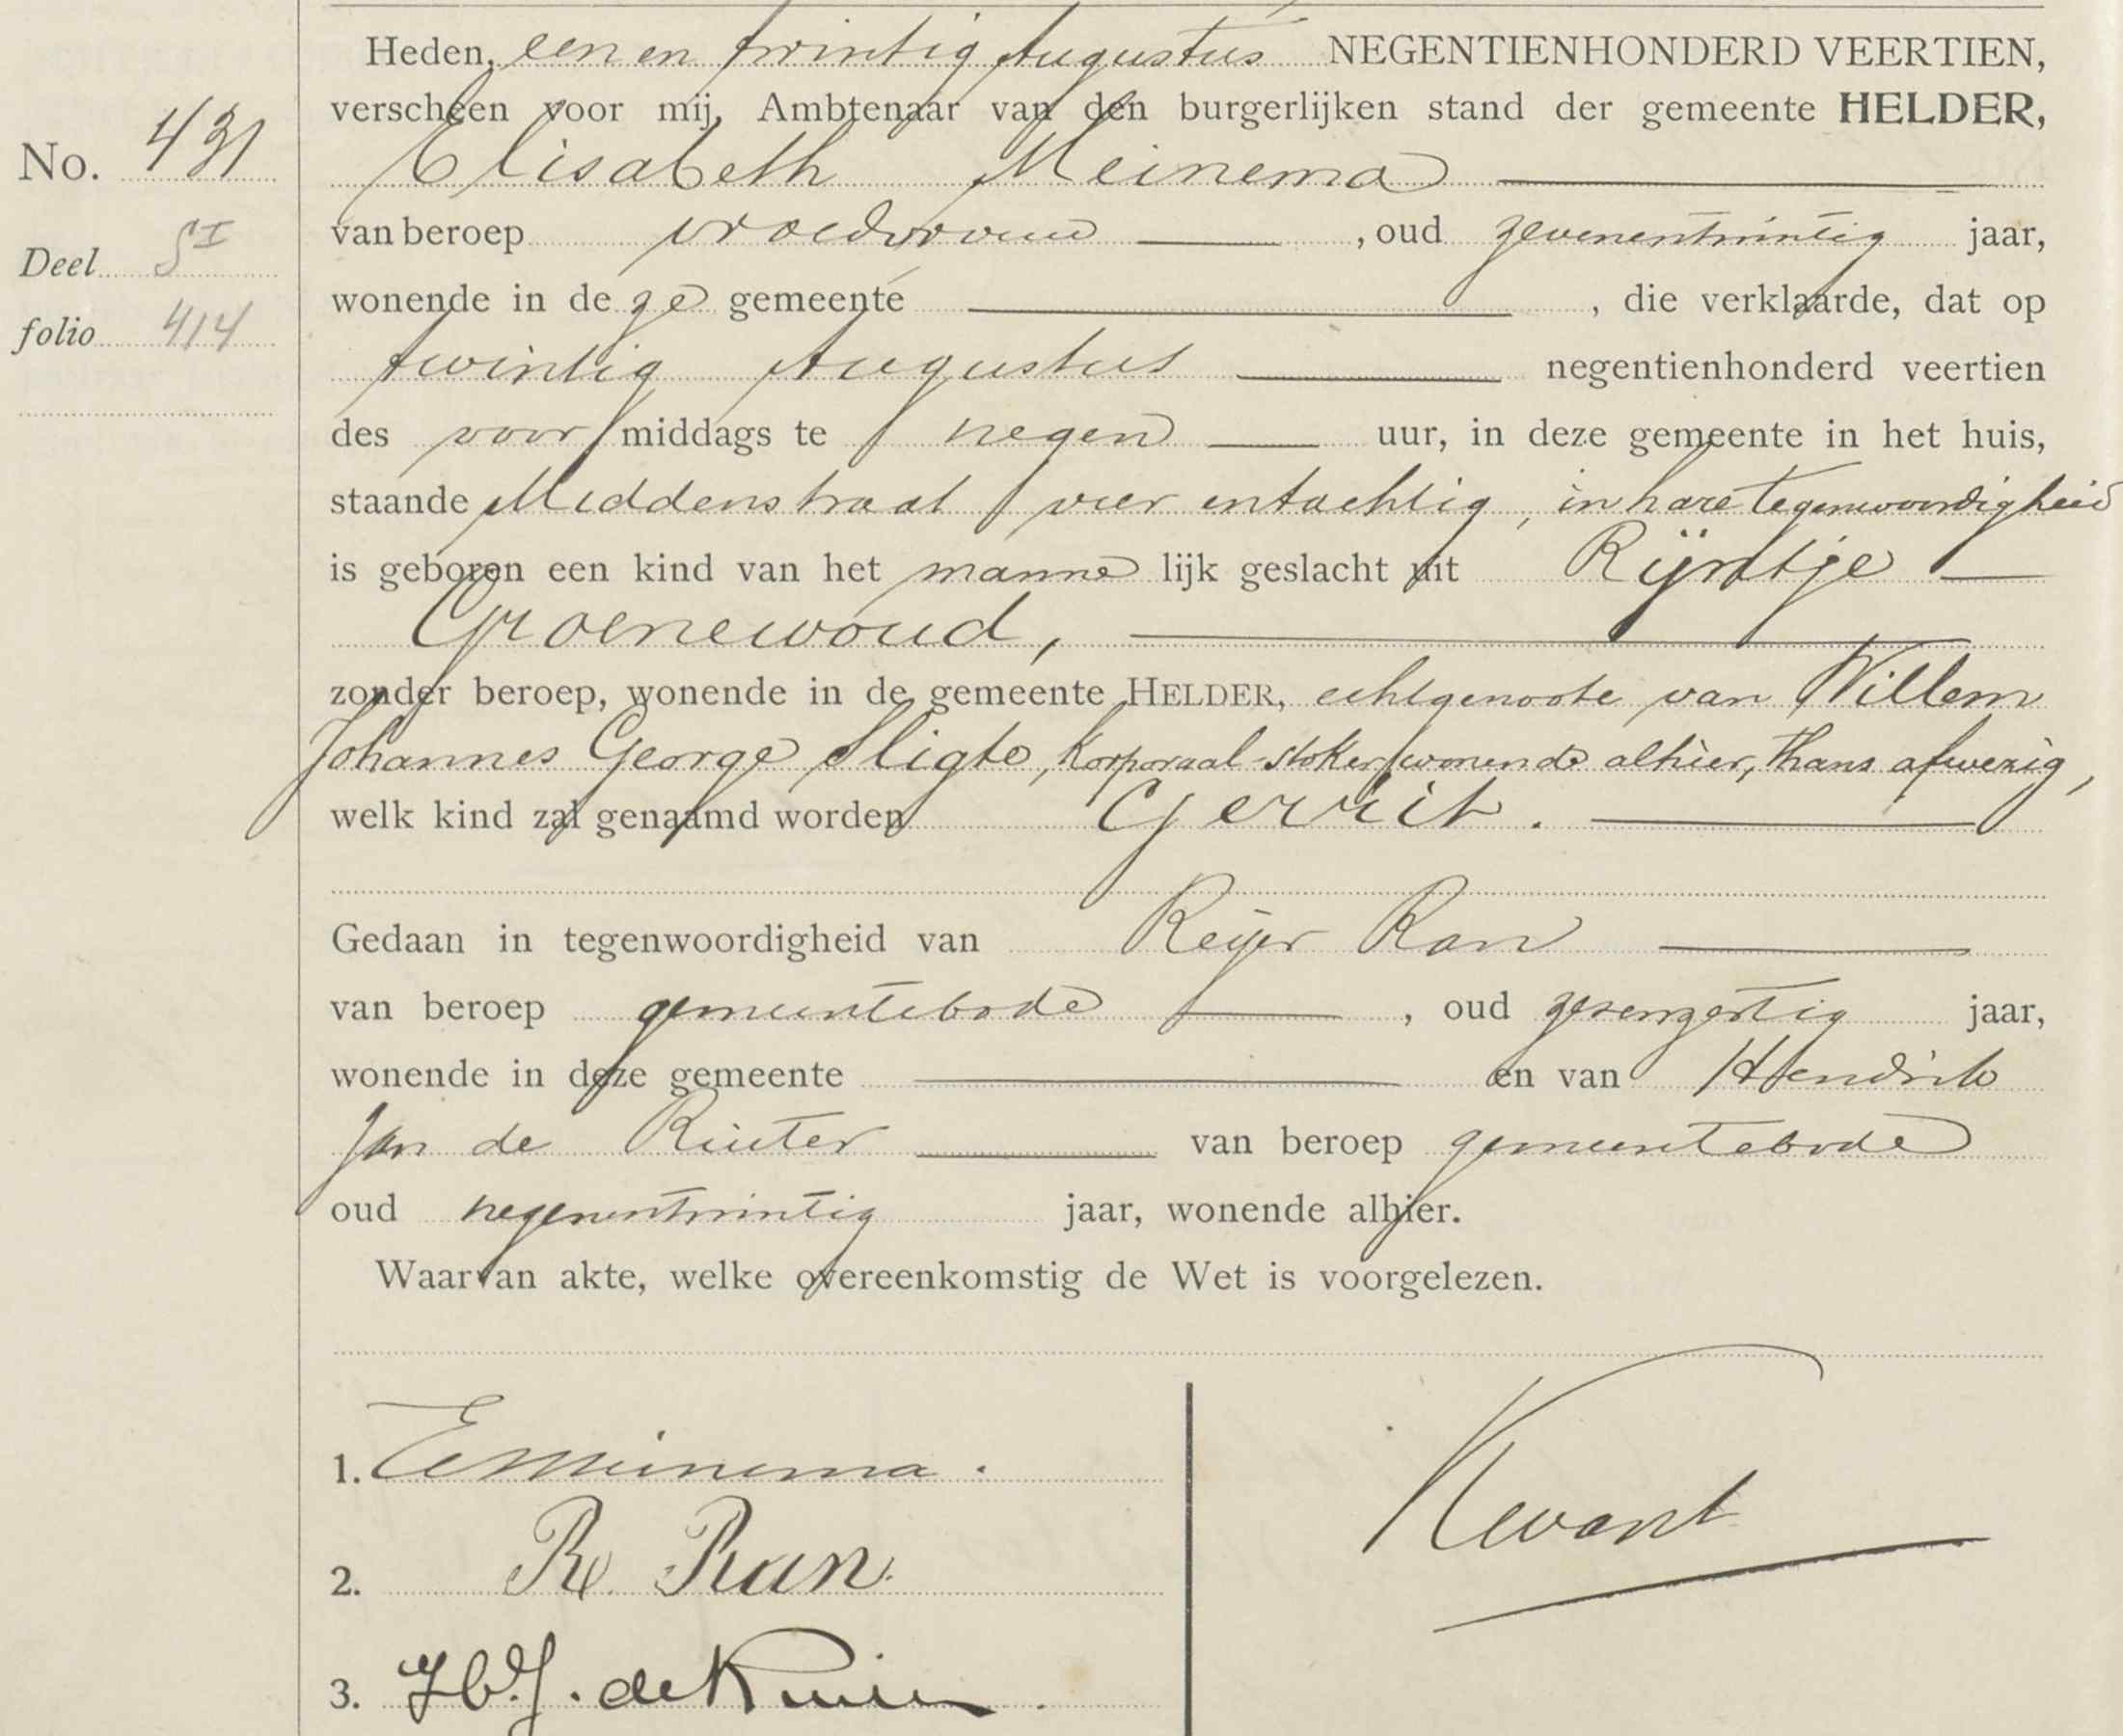 Heden, een en twintig Augustus NEGENTIENHONDERD VEERTIEN,
verscheen voor mij, Ambtenaar van den burgerlijken stand der gemeente HELDER,
No. 431
Elisabeth Meinema
Deel S I
van beroep vroedvrouw, oud zevenentwintig jaar,
folio 414
wonende in deze gemeente, die verklaarde, dat op
twintig Augustus negentienhonderd veertien
des voormiddags te negen uur, in deze gemeente in het huis,
staande Middenstraat vier entachtig, in hare tegenwoordigheid
is geboren een kind van het mannelijk geslacht uit Rijntje
Groenewoud,
zonder beroep, wonende in de gemeente HELDER, echtgenoote van Willem
Johannes George Sligte, korporaal-stoker, wonende alhier, thans afwezig,
welk kind zal genaamd worden Gerrit.
Gedaan in tegenwoordigheid van Reijer Ran
van beroep gemeentebode, oud zevenzestig jaar,
wonende in deze gemeente en van Hendrik
Jan de Ruiter van beroep gemeentebode
oud negenentwintig jaar, wonende alhier.
Waarvan akte, welke overeenkomstig de Wet is voorgelezen.
1. E Meinema.
Kwant
2. R. Ran.
3. H.J. de Ruiter.